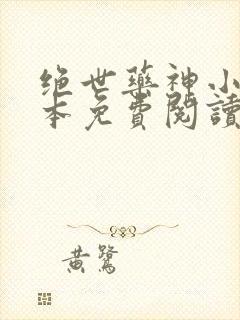 绝世药神小
本免費閱讀
黄鹭